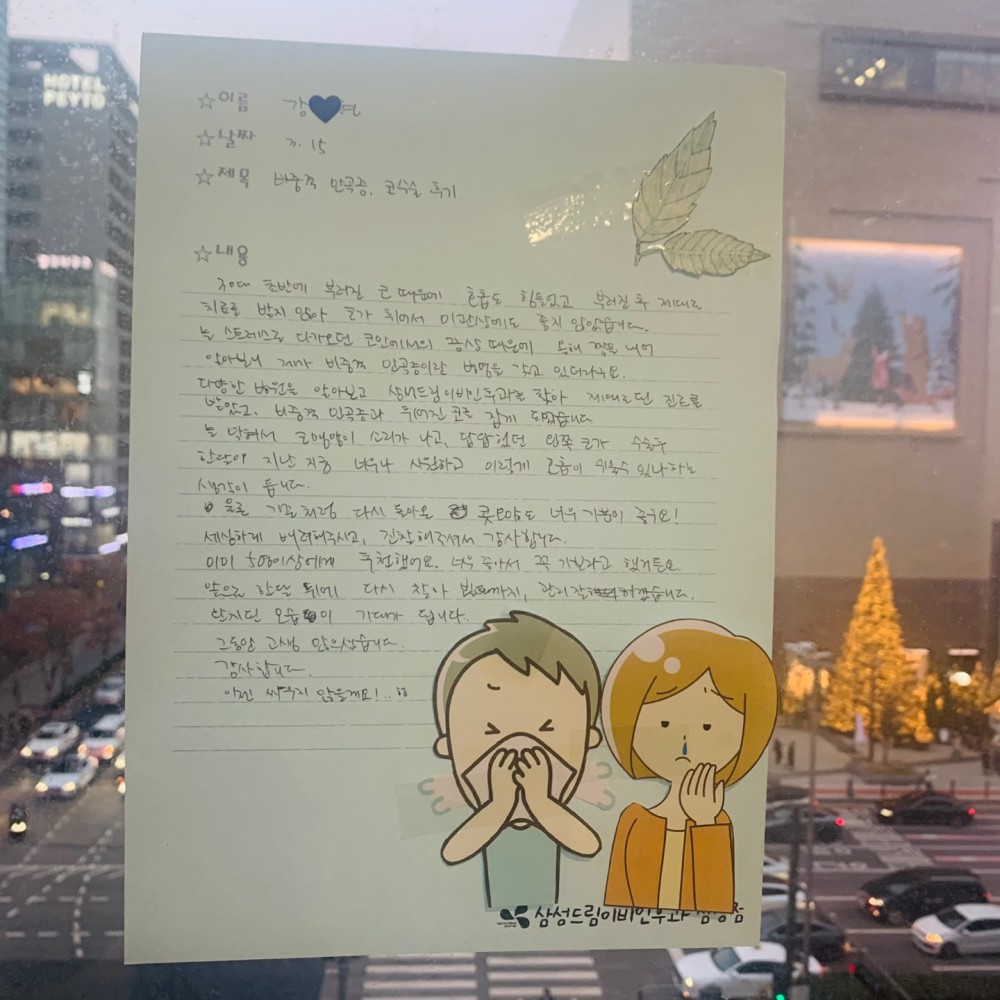 HOTEL
PEYTO
☆이름 강
☆날짜 11. 15
☆제목 비중격 만곡증, 코수술 후기
☆내용
30대 초반에 부러진 코 때문에 호흡도 힘들었고 부러진 후 제대로
치료를 받지 않아 코가 휘어서 미관상에도 좋지 않았습니다.
늘 스트레스로 다가오던 코안에서의 때문에
알아보니 제가 비중격 만곡증이란 병명을 갖고 있더라구요.
다양한 병원을 알아보고 삼성드림이비인후과를 찾아 제대로된 진료를
받았고, 비중격 만곡증과 휘어진 코를 잡게 되었습니다
늘 막혀서 코맹맹이 소리가 나고, 답답했던 왼쪽 코가 수술후
한달이 지난 지금 너무나 시원하고 이렇게 호흡이 쉬울수 있나 하는
생각이 듭니다.
기절처럼 다시 돌아온 콧모양도 너무 기분이 좋구요!
세심하게 배려해주시고, 긴장해주셔서 감사합니다.
이미 5명이상에게 추천했어요. 너무 좋아서 꼭 가보라고 했거든요
앞으로 한달 뒤에 다시 찾아 뵐때까지, 관리잘하겠습니다.
달라진 모습이 기대가 됩니다.
그동안 고생 많으셨습니다.
감사합니다.
이젠 싸우지 않을게요!
삼성드림이비인후과 삼성점